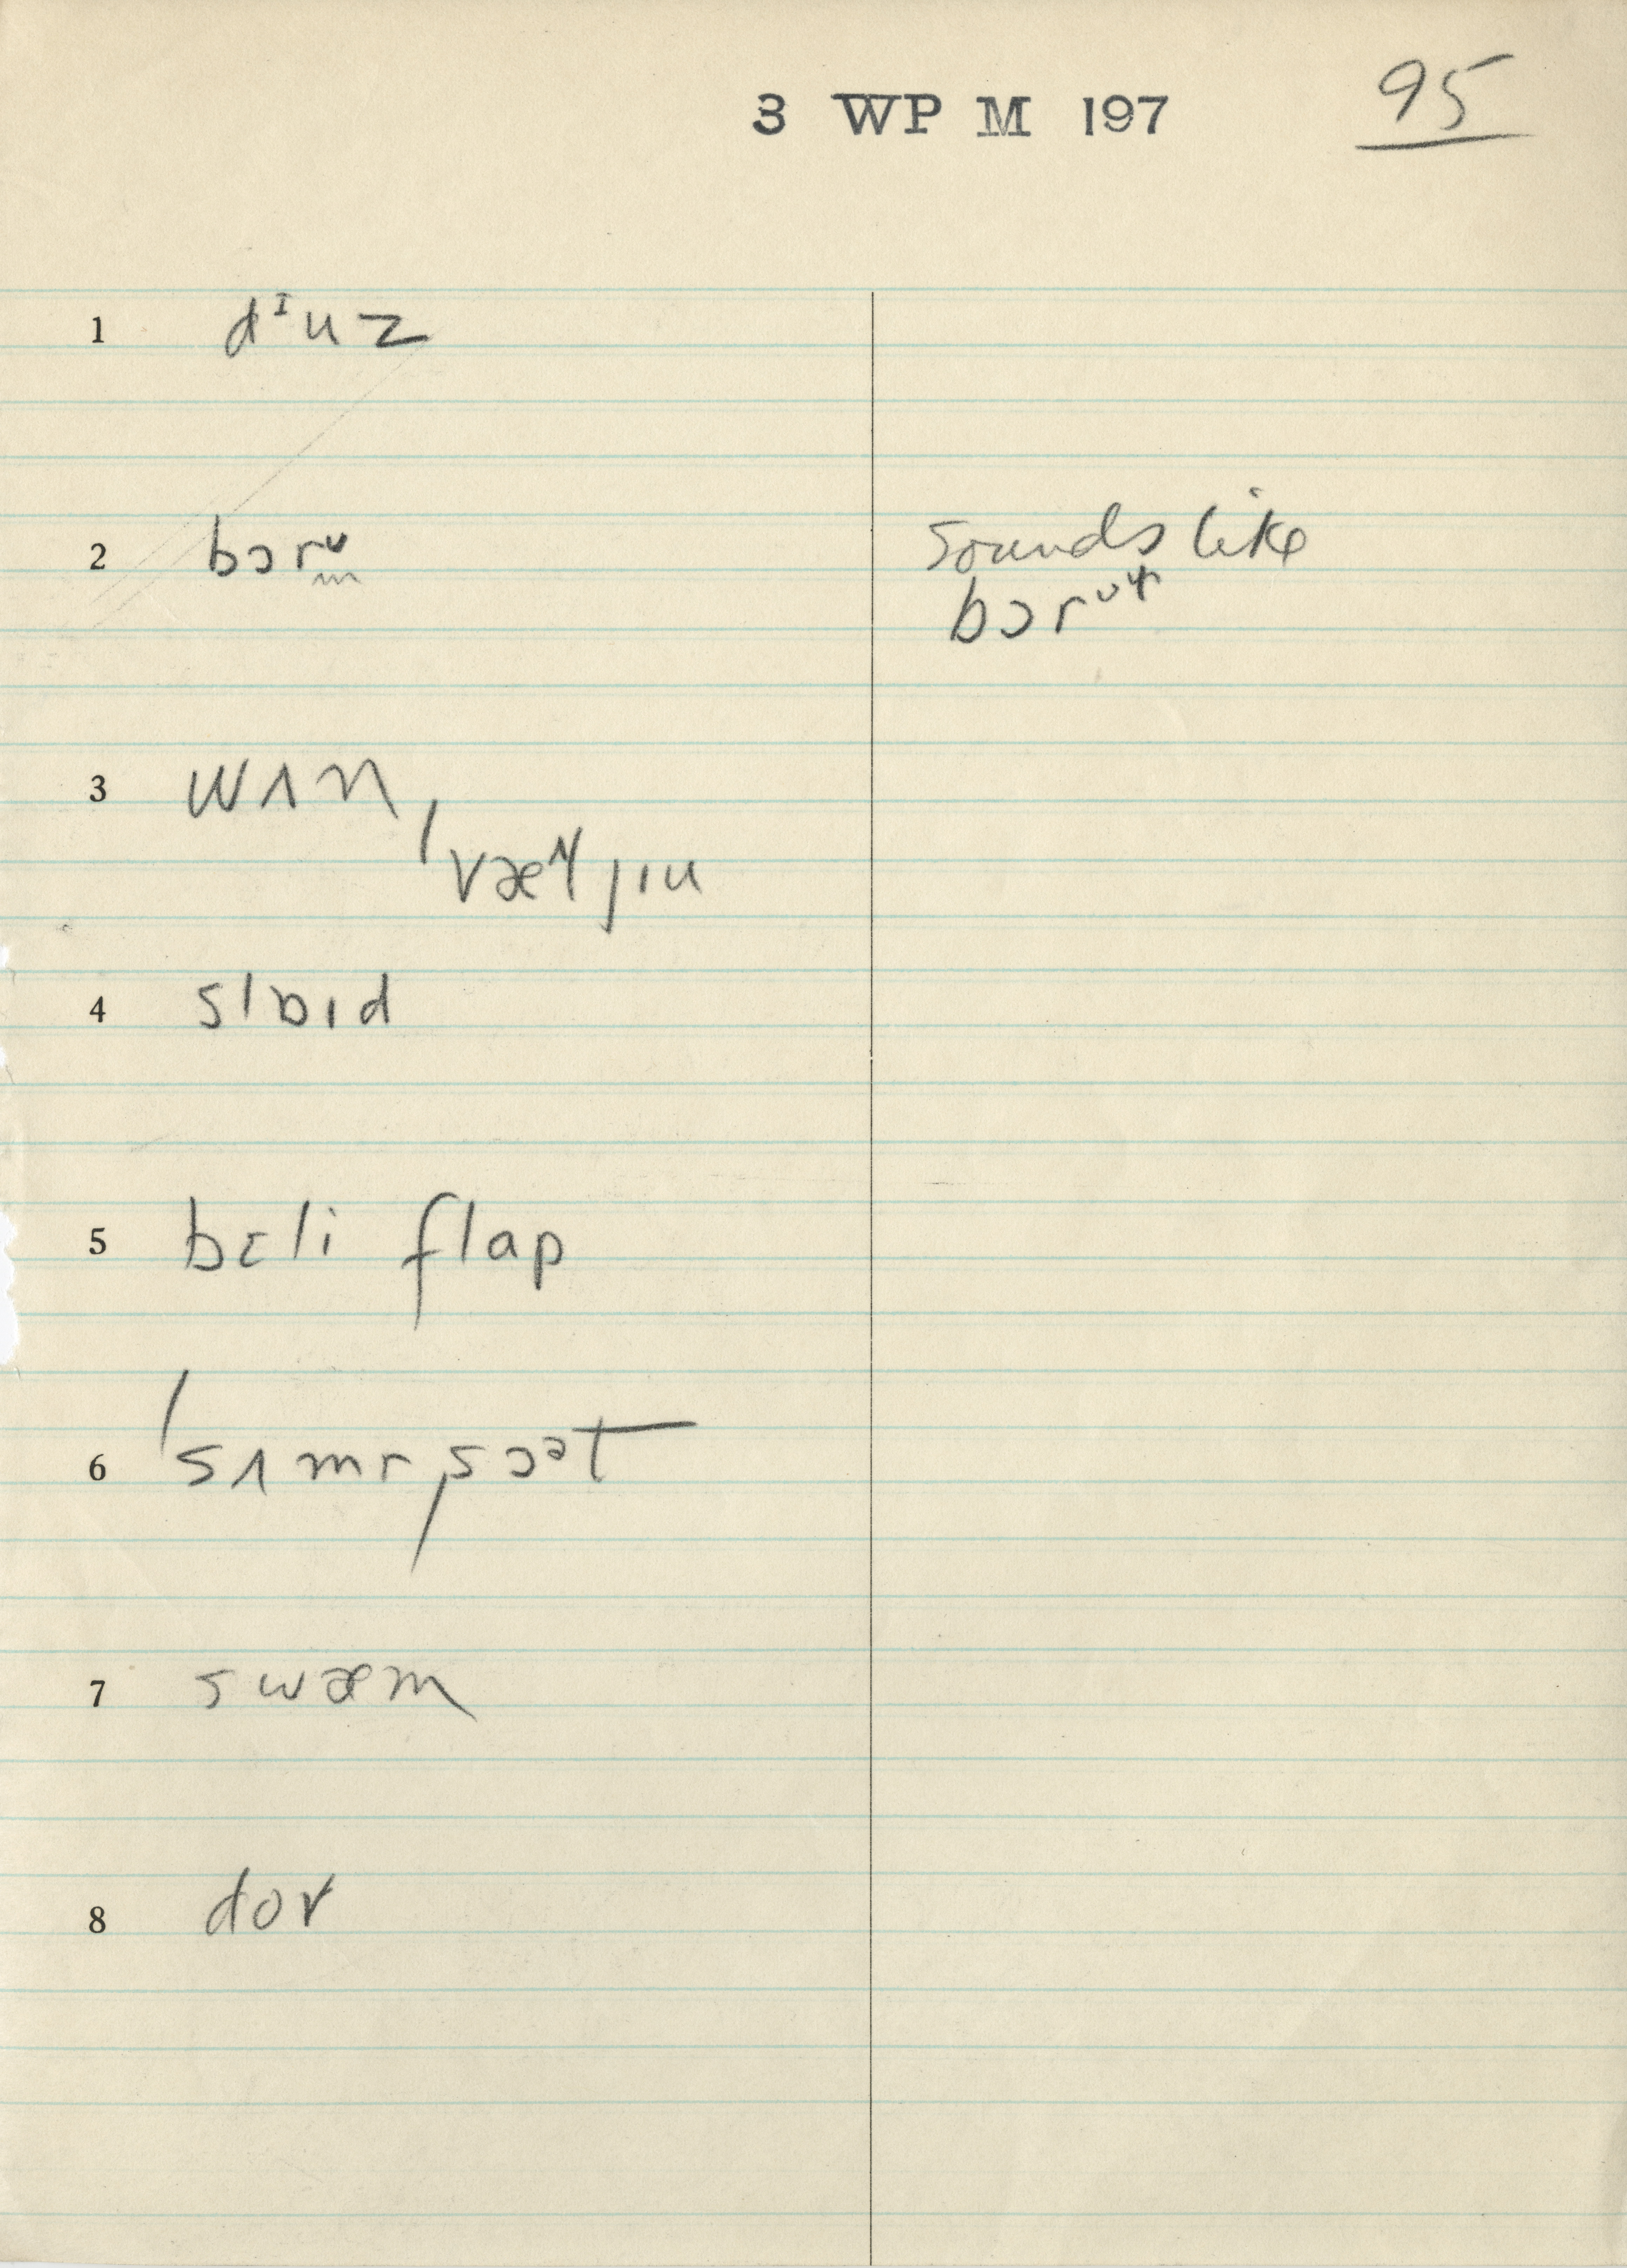 3 WP M 197 95
1 dᶦuz
2 bɔrᶷ sounds like
bɔrᶷɫ
3 wʌn
ˈvæljɪu
4 slɒɪd
5 bɛli flap
6 ˈsʌmrˌsɔᵊt
7 swæm
8 dov